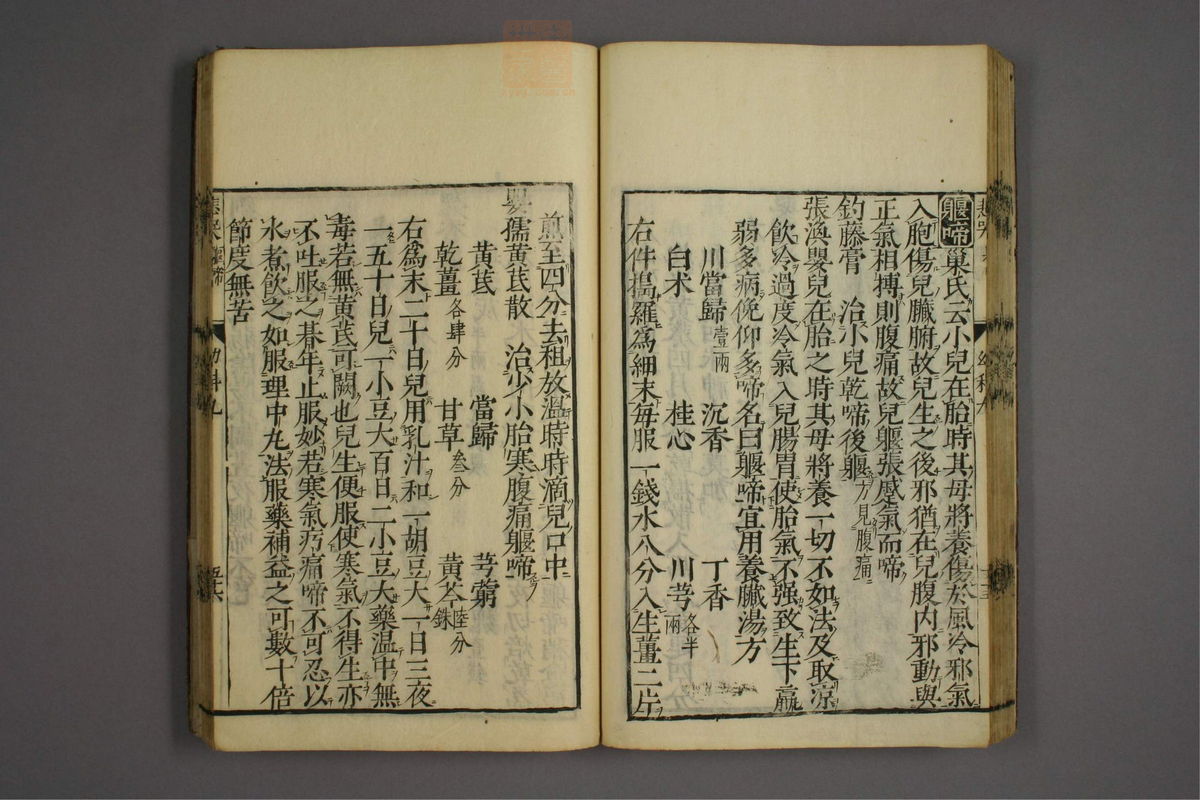 躽啼 巢氏云小兒在胎時其母將養傷於風冷邪氣
入胞傷兒臟腑故兒生之後邪猶在兒腹內邪動與
正氣相搏則腹痛故兒躽張感氣而啼
釣藤膏 治小兒乾啼後躽方見腹痛
張渙嬰兒在胎之時其母將養一切不如法及取涼
飲冷過度冷氣入兒腸胃使胎氣不强致生下羸
弱多病俛仰多啼名曰躽啼宜用養臟湯方
川當歸壹兩 沉香 丁香
白术 桂心 川芎各半兩
右件搗羅爲細末每服一錢水八分入生薑二片
煎至四分去柤放溫時時滴兒口中
嬰孺黃芪散 治少小胎寒腹痛躽啼
黃芪 當歸 芎藭
乾薑各肆分 甘草叄分 黃芩陸分銖
右爲末二十日兒用乳汁和一胡豆大一日三夜
一五十日兒一小豆大百日二小豆大藥溫中無
毒若無黃芪可闕也兒生便服使寒氣不得生亦
不吐服之朞年止服妙若寒氣㽲痛啼不可忍以
水煮飲之如服理中丸法服藥補益之可數十倍
節度無苦
幼科九
五六